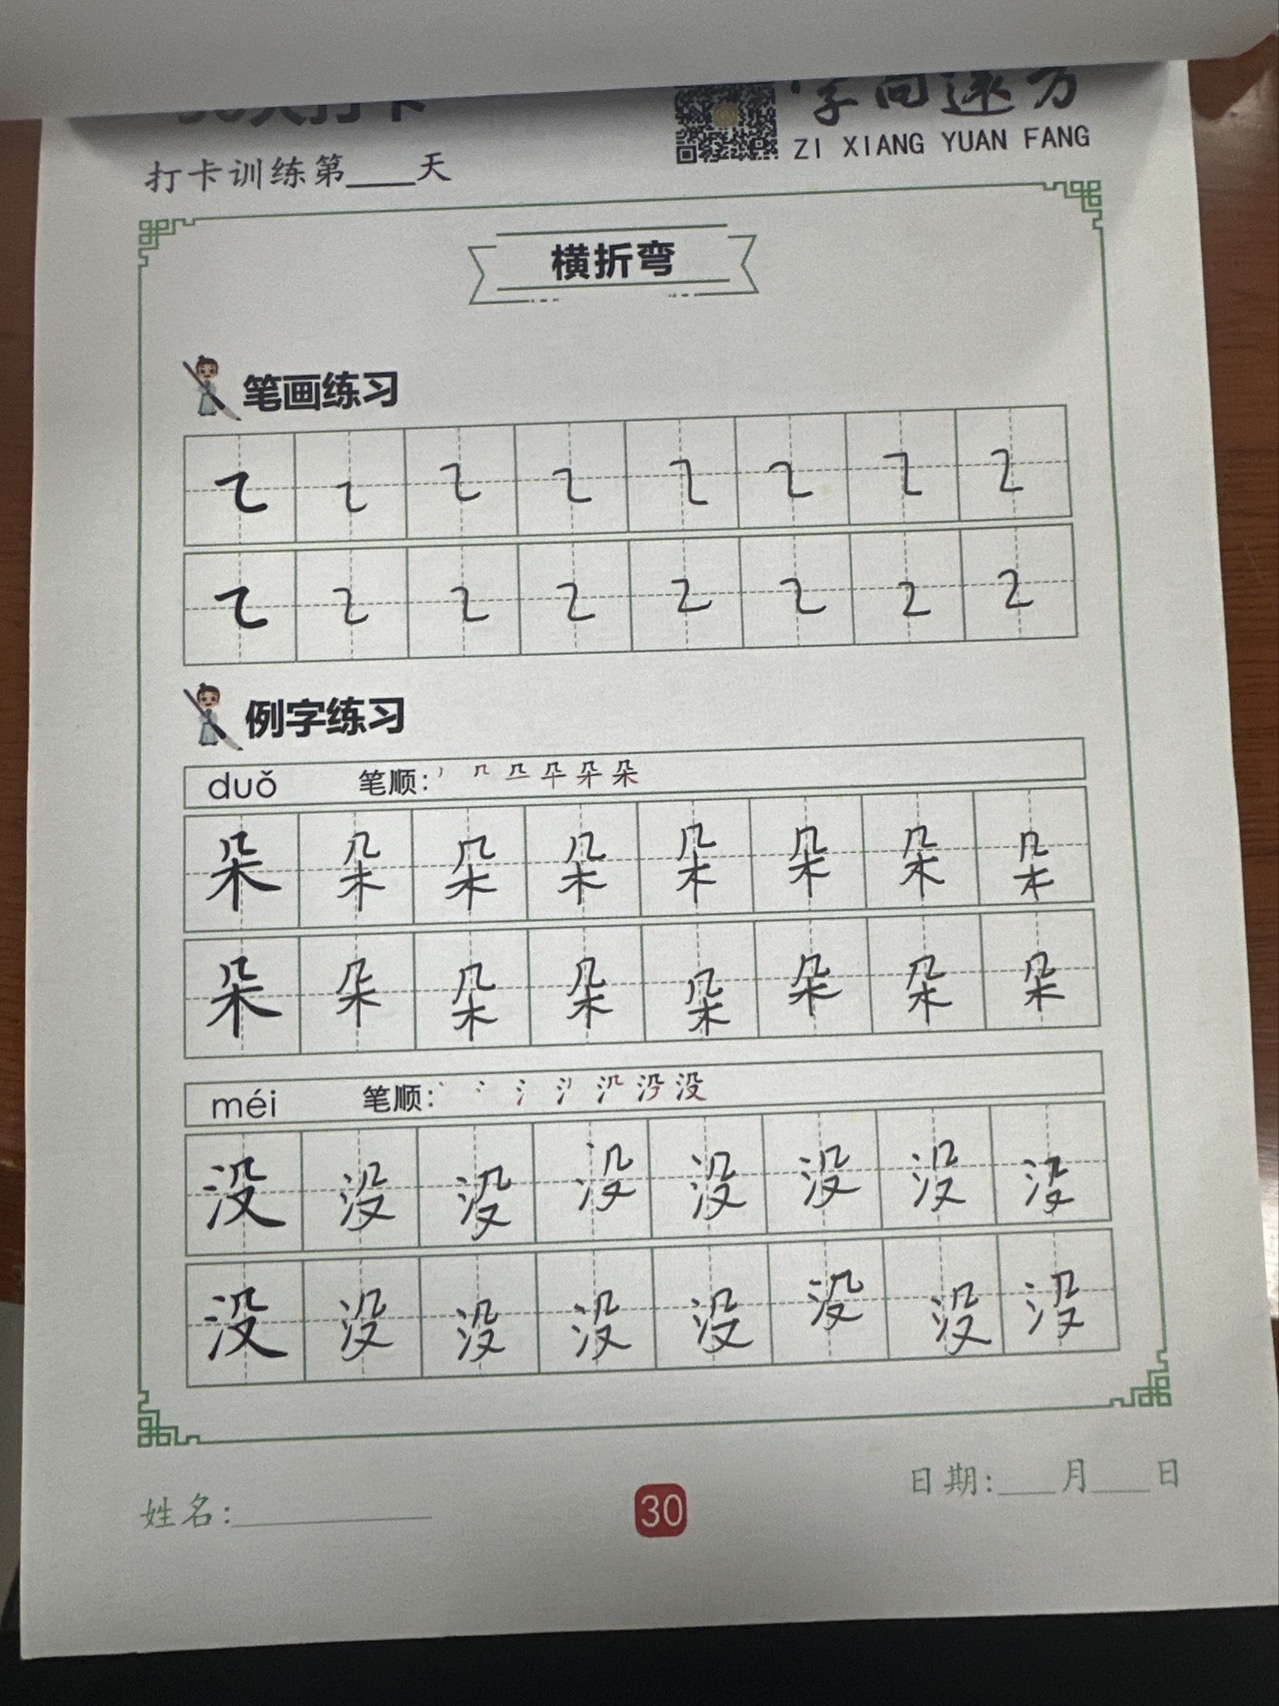 打卡训练第____天
字向远方
ZI XIANG YUAN FANG
横折弯
笔画练习
例字练习
duǒ 笔顺:
朵 朵 朵 朵 朵 朵 朵 朵
朵 朵 朵 朵 朵 朵 朵 朵
méi 笔顺:
没 没 没 没 没 没 没 没
没 没 没 没 没 没 没 没
姓名:__________ 30 日期:___月___日